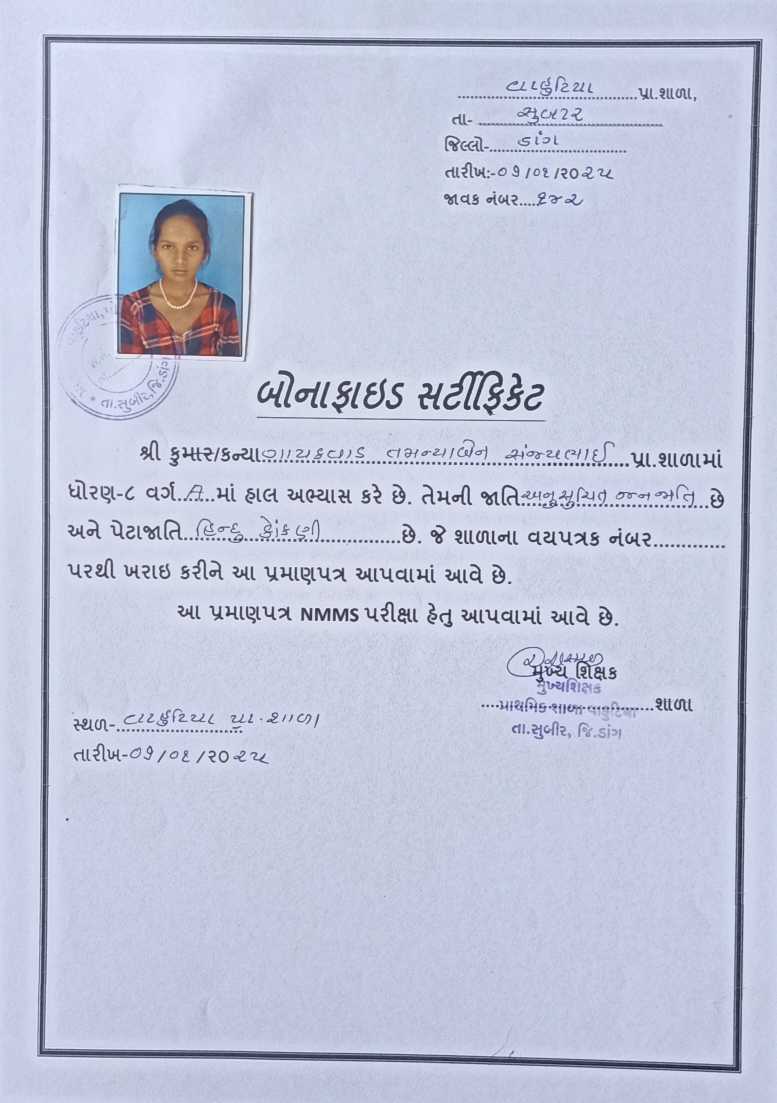 વાહુટિયા પ્રા.શાળા,
તા- સુબીર
જિલ્લો- ડાંગ
તારીખ:-૦૧/૦૬/૨૦૨૫
જાવક નંબર....૬૪૨
તા.સુબીર, જિ.ડાંગ
બોનાફાઇડ સર્ટીફિકેટ
શ્રી કુમાર/કન્યા ગાયકવાડ તમન્નાબેન સંજયભાઈ પ્રા.શાળામાં
ધોરણ-૮ વર્ગ..A..માં હાલ અભ્યાસ કરે છે. તેમની જાતિ અનુસુચિત જનજાતિ છે
અને પેટાજાતિ હિન્દુ કોંકણી છે. જે શાળાના વયપત્રક નંબર
પરથી ખરાઇ કરીને આ પ્રમાણપત્ર આપવામાં આવે છે.
આ પ્રમાણપત્ર NMMS પરીક્ષા હેતુ આપવામાં આવે છે.
મુખ્ય શિક્ષક
મુખ્યશિક્ષક
પ્રાથમિક શાળા વાહુટિયા શાળા
તા.સુબીર, જિ.ડાંગ
સ્થળ- વાહુટિયા પ્રા.શાળા
તારીખ-૦૧/૦૬/૨૦૨૫